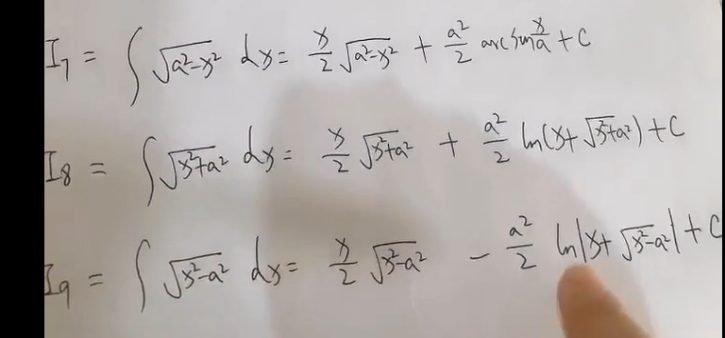 I₇ = ∫ √(a²-x²) dx = x/2 √(a²-x²) + a²/2 arcsin x/a + C
I₈ = ∫ √(x²+a²) dx = x/2 √(x²+a²) + a²/2 ln(x+√(x²+a²)) + C
I₉ = ∫ √(x²-a²) dx = x/2 √(x²-a²) - a²/2 ln|x+√(x²-a²)| + C